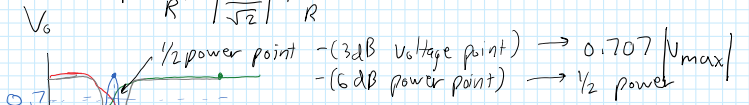 R |√2| R
V₀
½ power point -(3dB voltage point) → 0.707 |Vmax|
-(6 dB power point) → ½ power
0.7